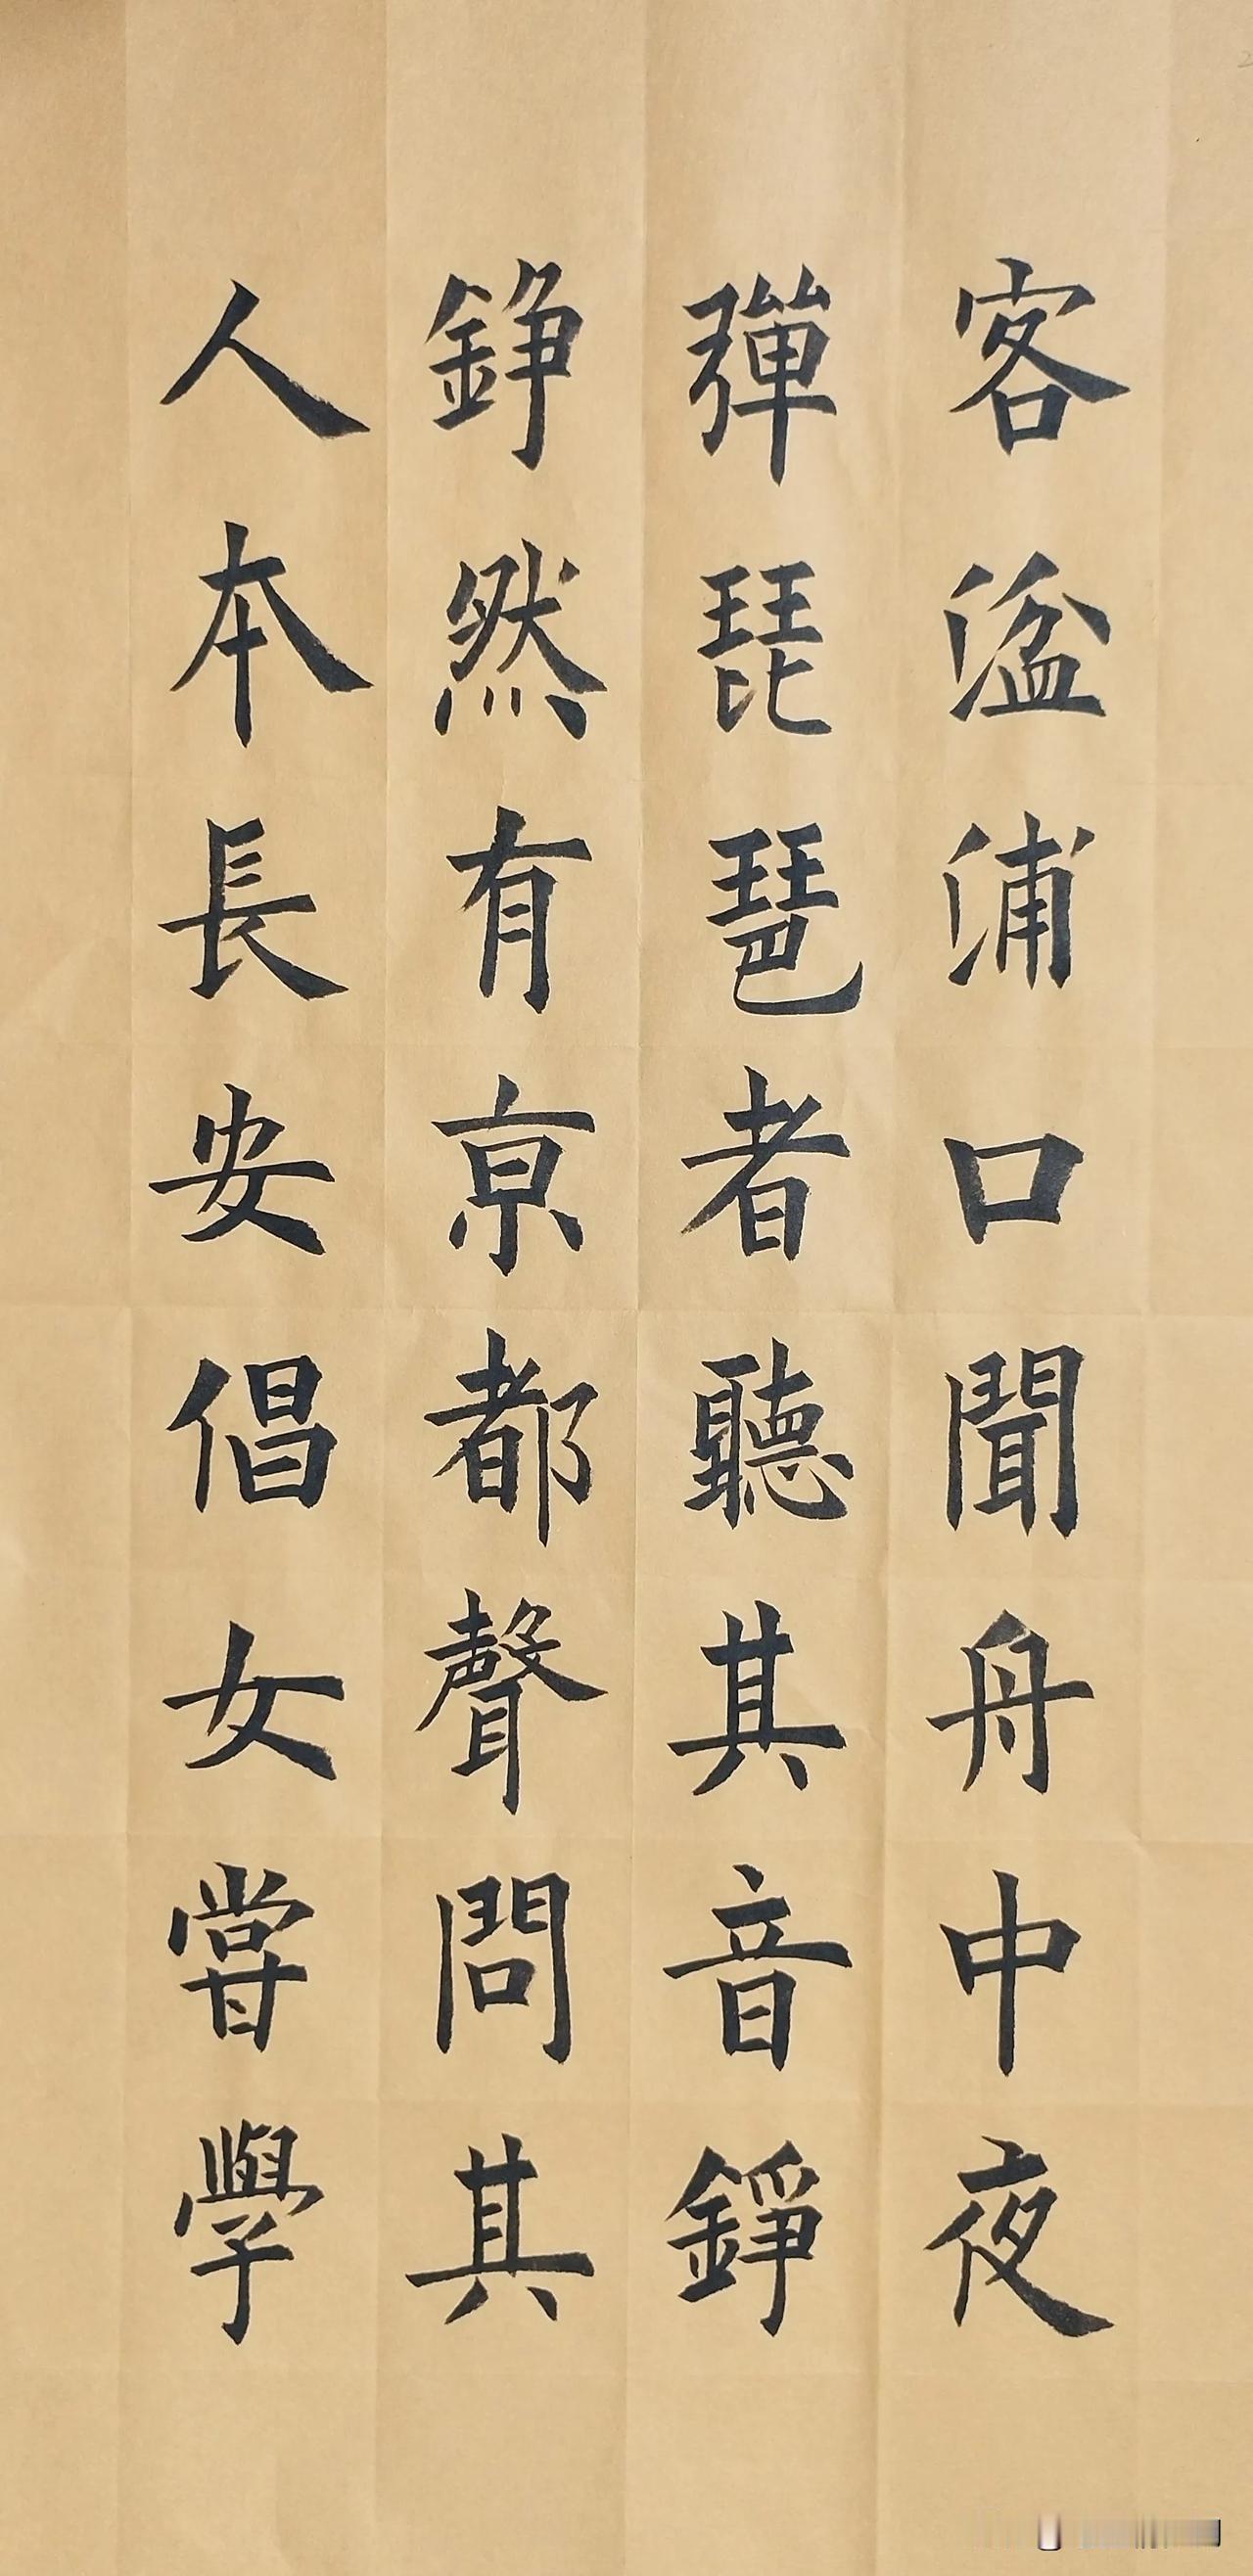 客湓浦口聞舟中夜
彈琵琶者聽其音錚
錚然有京都聲問其
人本長安倡女嘗學